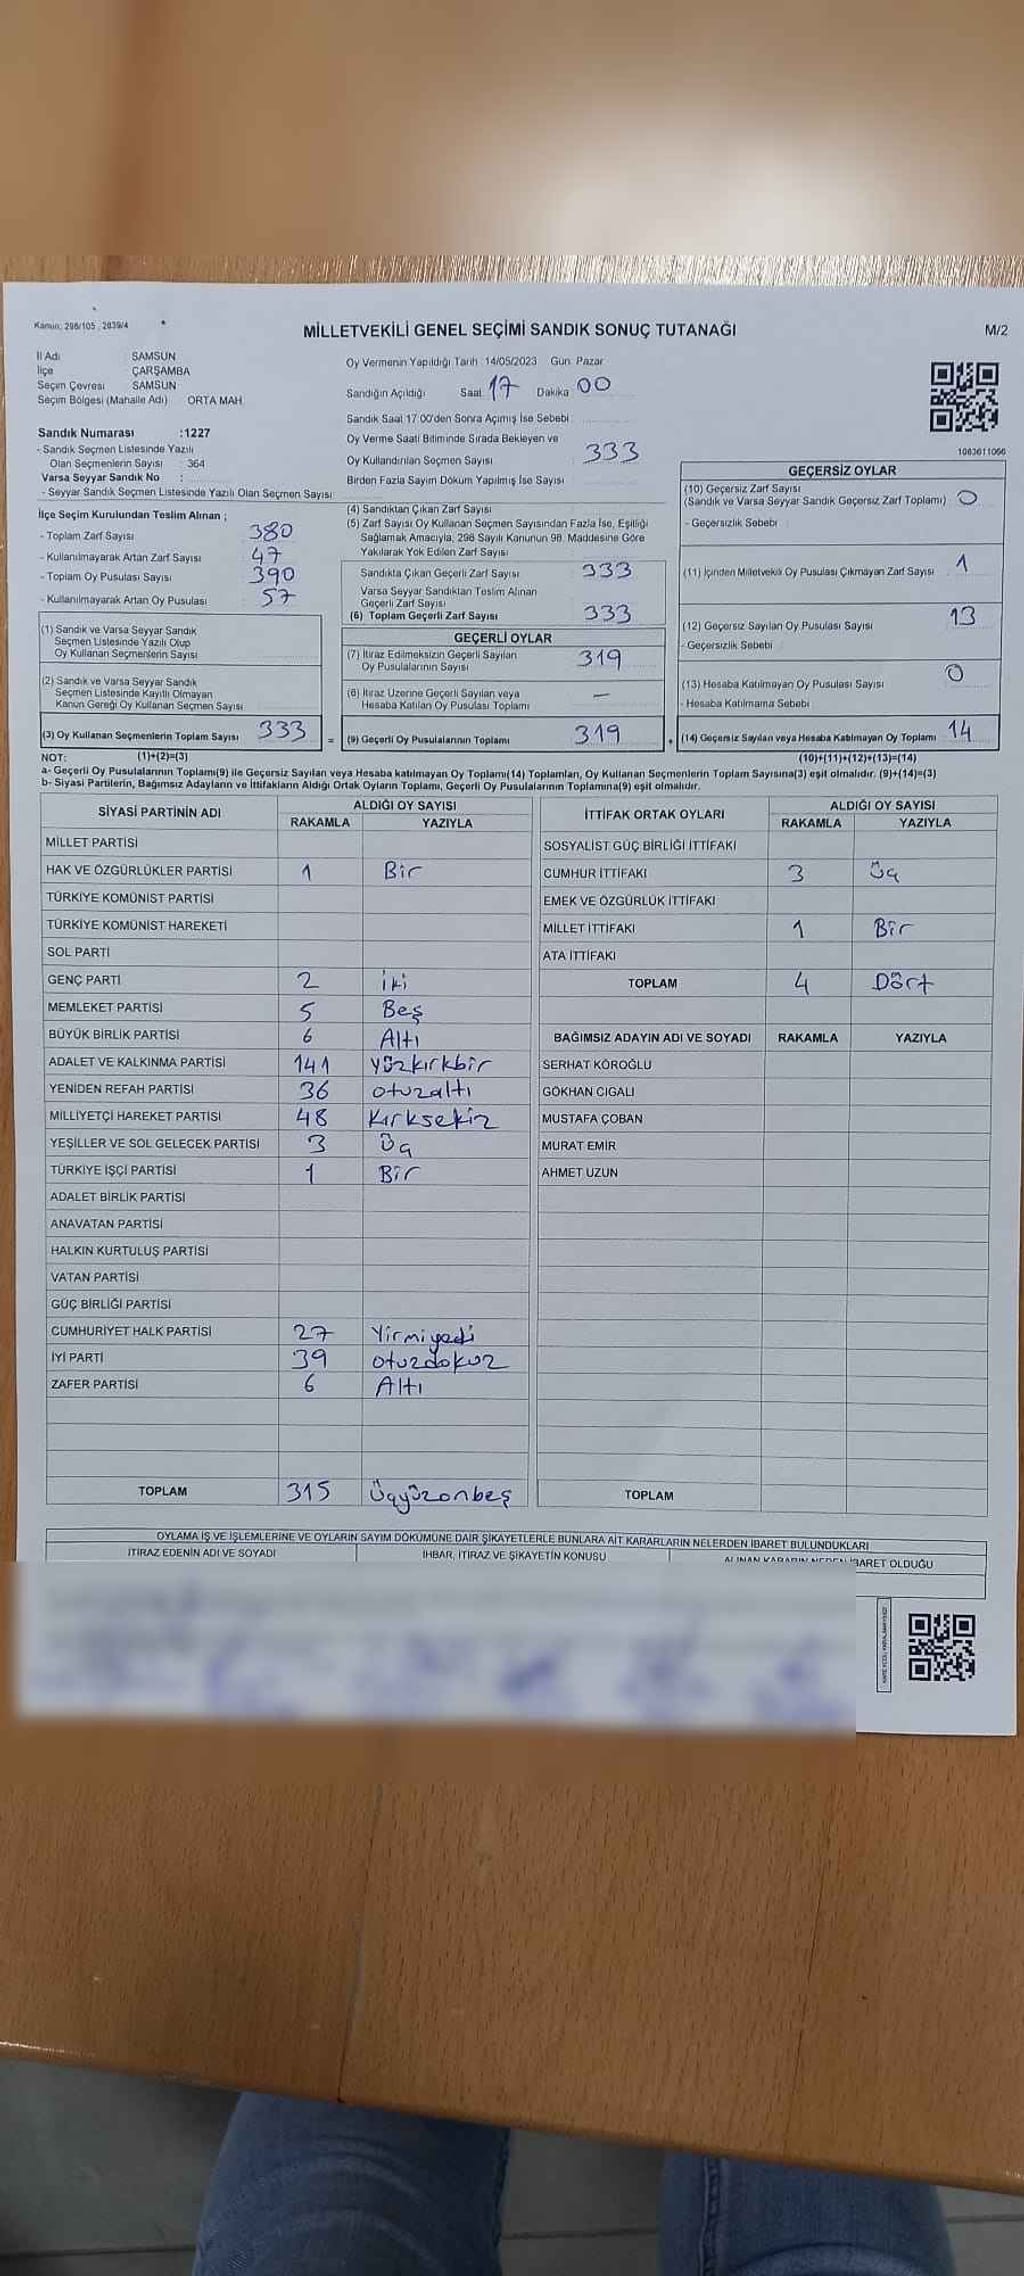 Kanun: 298/105, 2839/4
MİLLETVEKİLİ GENEL SEÇİMİ SANDIK SONUÇ TUTANAĞI
M/2
İl Adı SAMSUN
İlçe ÇARŞAMBA
Seçim Çevresi SAMSUN
Seçim Bölgesi (Mahalle Adı) ORTA MAH.
Sandık Numarası :1227
- Sandık Seçmen Listesinde Yazılı
Olan Seçmenlerin Sayısı : 364
Varsa Seyyar Sandık No :
- Seyyar Sandık Seçmen Listesinde Yazılı Olan Seçmen Sayısı
İlçe Seçim Kurulundan Teslim Alınan ;
- Toplam Zarf Sayısı 380
- Kullanılmayarak Artan Zarf Sayısı 47
- Toplam Oy Pusulası Sayısı 390
- Kullanılmayarak Artan Oy Pusulası 57
(1) Sandık ve Varsa Seyyar Sandık
Seçmen Listesinde Yazılı Olup
Oy Kullanan Seçmenlerin Sayısı
(2) Sandık ve Varsa Seyyar Sandık
Seçmen Listesinde Kayıtlı Olmayan
Kanun Gereği Oy Kullanan Seçmen Sayısı
(3) Oy Kullanan Seçmenlerin Toplam Sayısı 333
(1)+(2)=(3)
Oy Vermenin Yapıldığı Tarih 14/05/2023 Gün: Pazar
Sandığın Açıldığı Saat 17 Dakika 00
Sandık Saat 17:00'den Sonra Açımış İse Sebebi
Oy Verme Saati Bitiminde Sırada Bekleyen ve
Oy Kullandırılan Seçmen Sayısı 333
Birden Fazla Sayım Döküm Yapılmış İse Sayısı
(4) Sandıktan Çıkan Zarf Sayısı
(5) Zarf Sayısı Oy Kullanan Seçmen Sayısından Fazla İse, Eşitliği
Sağlamak Amacıyla, 298 Sayılı Kanunun 98. Maddesine Göre
Yakılarak Yok Edilen Zarf Sayısı
Sandıkta Çıkan Geçerli Zarf Sayısı 333
Varsa Seyyar Sandıktan Teslim Alınan
Geçerli Zarf Sayısı
(6) Toplam Geçerli Zarf Sayısı 333
GEÇERLİ OYLAR
(7) İtiraz Edilmeksizin Geçerli Sayılan
Oy Pusulalarının Sayısı 319
(8) İtiraz Üzerine Geçerli Sayılan veya
Hesaba Katılan Oy Pusulası Toplamı —
= (9) Geçerli Oy Pusulalarının Toplamı 319
1083611066
GEÇERSİZ OYLAR
(10) Geçersiz Zarf Sayısı
(Sandık ve Varsa Seyyar Sandık Geçersiz Zarf Toplamı) 0
- Geçersizlik Sebebi
(11) İçinden Milletvekili Oy Pusulası Çıkmayan Zarf Sayısı 1
(12) Geçersiz Sayılan Oy Pusulası Sayısı 13
- Geçersizlik Sebebi
(13) Hesaba Katılmayan Oy Pusulası Sayısı 0
- Hesaba Katılmama Sebebi
+ (14) Geçersiz Sayılan veya Hesaba Katılmayan Oy Toplamı 14
(10)+(11)+(12)+(13)=(14)
NOT:
a- Geçerli Oy Pusulalarının Toplamı(9) ile Geçersiz Sayılan veya Hesaba katılmayan Oy Toplamı(14) Toplamları, Oy Kullanan Seçmenlerin Toplam Sayısına(3) eşit olmalıdır. (9)+(14)=(3)
b- Siyasi Partilerin, Bağımsız Adayların ve İttifakların Aldığı Ortak Oyların Toplamı, Geçerli Oy Pusulalarının Toplamına(9) eşit olmalıdır.
SİYASİ PARTİNİN ADI ALDIĞI OY SAYISI
RAKAMLA YAZIYLA
MİLLET PARTİSİ
HAK VE ÖZGÜRLÜKLER PARTİSİ 1 Bir
TÜRKİYE KOMÜNİST PARTİSİ
TÜRKİYE KOMÜNİST HAREKETİ
SOL PARTİ
GENÇ PARTİ 2 iki
MEMLEKET PARTİSİ 5 Beş
BÜYÜK BİRLİK PARTİSİ 6 Altı
ADALET VE KALKINMA PARTİSİ 141 yüzkırkbir
YENİDEN REFAH PARTİSİ 36 otuzaltı
MİLLİYETÇİ HAREKET PARTİSİ 48 Kırksekiz
YEŞİLLER VE SOL GELECEK PARTİSİ 3 Üç
TÜRKİYE İŞÇİ PARTİSİ 1 Bir
ADALET BİRLİK PARTİSİ
ANAVATAN PARTİSİ
HALKIN KURTULUŞ PARTİSİ
VATAN PARTİSİ
GÜÇ BİRLİĞİ PARTİSİ
CUMHURİYET HALK PARTİSİ 27 Yirmiyedi
İYİ PARTİ 39 otuzdokuz
ZAFER PARTİSİ 6 Altı
TOPLAM 315 Üçyüzonbeş
İTTİFAK ORTAK OYLARI ALDIĞI OY SAYISI
RAKAMLA YAZIYLA
SOSYALİST GÜÇ BİRLİĞİ İTTİFAKI
CUMHUR İTTİFAKI 3 Üç
EMEK VE ÖZGÜRLÜK İTTİFAKI
MİLLET İTTİFAKI 1 Bir
ATA İTTİFAKI
TOPLAM 4 Dört
BAĞIMSIZ ADAYIN ADI VE SOYADI RAKAMLA YAZIYLA
SERHAT KÖROĞLU
GÖKHAN CIGALI
MUSTAFA ÇOBAN
MURAT EMİR
AHMET UZUN
TOPLAM
OYLAMA İŞ VE İŞLEMLERİNE VE OYLARIN SAYIM DÖKÜMÜNE DAİR ŞİKAYETLERLE BUNLARA AİT KARARLARIN NELERDEN İBARET BULUNDUKLARI
İTİRAZ EDENİN ADI VE SOYADI İHBAR, İTİRAZ VE ŞİKAYETİN KONUSU ALINAN KARARIN NEDEN İBARET OLDUĞU